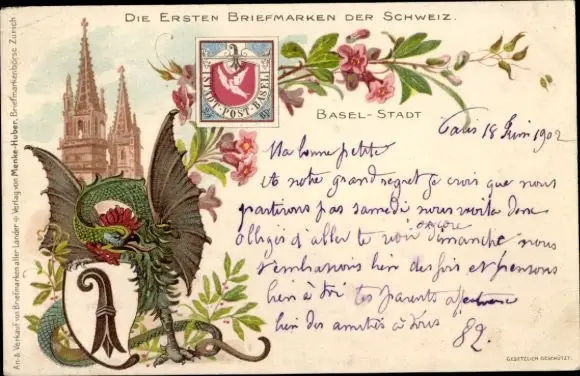 DIE ERSTEN BRIEFMARKEN DER SCHWEIZ.
STADT-POST-BASEL
BASEL-STADT
Paris 18 Juin 1902
Ma bonne petite
A notre grand regret je crois que nous
partirons pas samedi nous voila donc
obligés d'aller te voir encore dimanche nous
t'embrassons bien des fois et pensons
bien à toi tes parents
bien des amitiés à tous
An- & Verkauf von Briefmarken aller Länder Verlag von Menke-Huber, Briefmarkenbörse Zürich
GESETZLICH GESCHÜTZT.